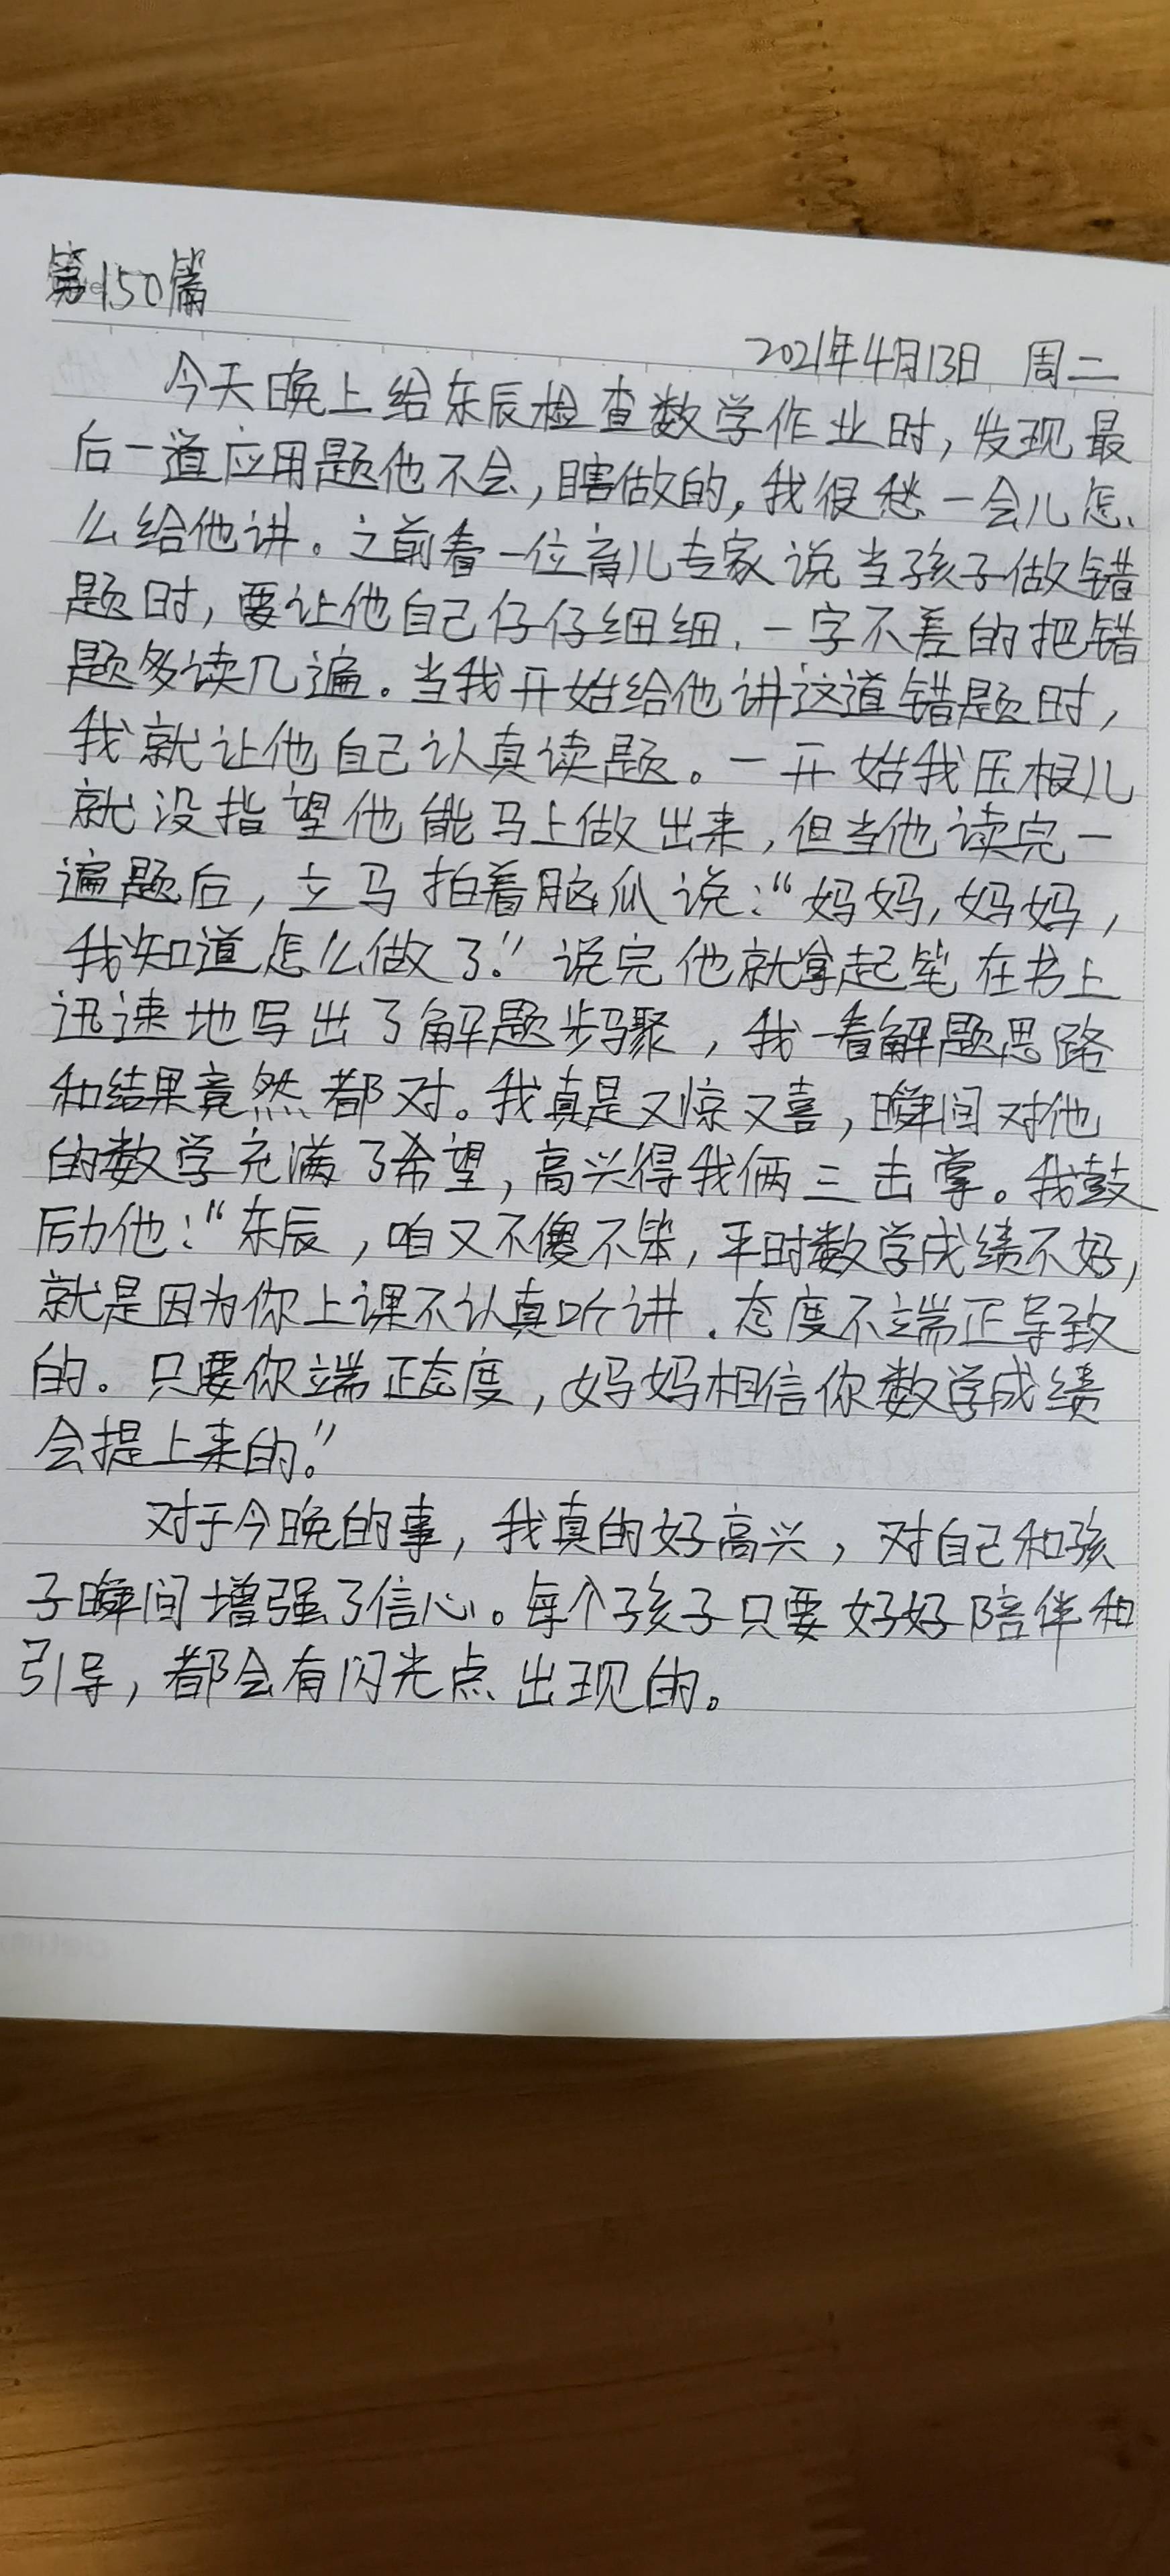 第150篇
2021年4月13日 周二
今天晚上给东辰检查数学作业时,发现最
后一道应用题他不会,瞎做的,我很愁一会儿怎
么给他讲。之前看一位育儿专家说当孩子做错
题时,要让他自己仔仔细细、一字不差的把错
题多读几遍。当我开始给他讲这道错题时,
我就让他自己认真读题。一开始我压根儿
就没指望他能马上做出来,但当他读完一
遍题后,立马拍着脑瓜说:“妈妈,妈妈,
我知道怎么做了。”说完他就拿起笔在书上
迅速地写出了解题步骤,我一看解题思路
和结果竟然都对。我真是又惊又喜,瞬间对他
的数学充满了希望,高兴得我俩三击掌。我鼓
励他:“东辰,咱又不傻不笨,平时数学成绩不好,
就是因为你上课不认真听讲、态度不端正导致
的。只要你端正态度,妈妈相信你数学成绩
会提上来的。”
对于今晚的事,我真的好高兴,对自己和孩
子瞬间增强了信心。每个孩子只要好好陪伴和
引导,都会有闪光点出现的。